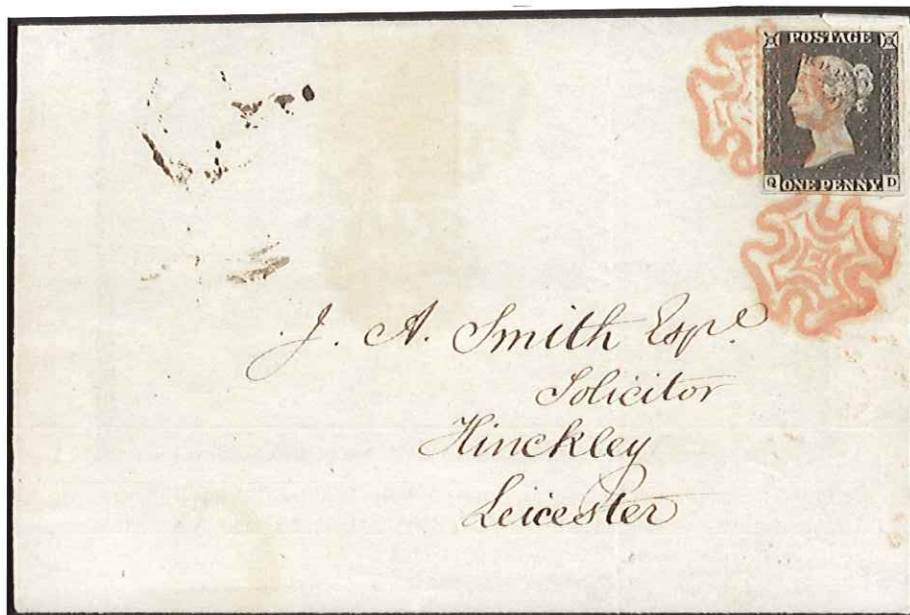 POSTAGE
Q ONE PENNY D
J. A. Smith Esqre.
Solicitor
Hinckley
Leicester